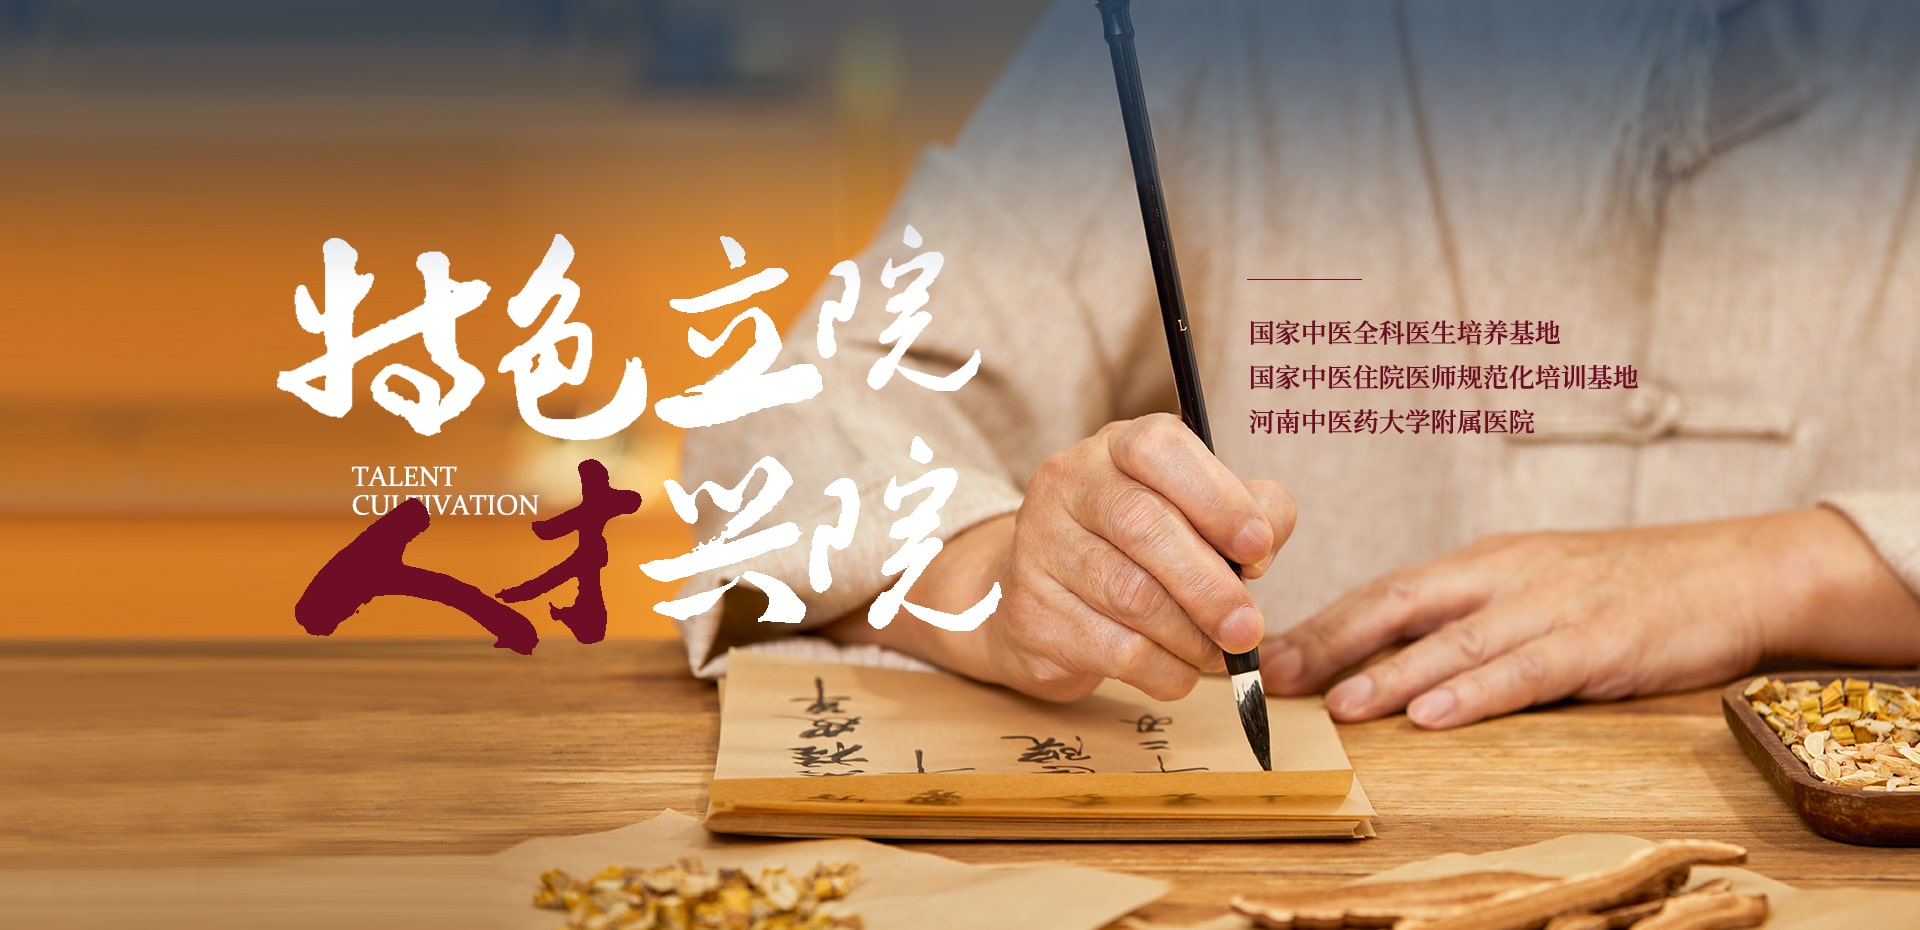 特色立院
TALENT
CULTIVATION
人才兴院
国家中医全科医生培养基地
国家中医住院医师规范化培训基地
河南中医药大学附属医院